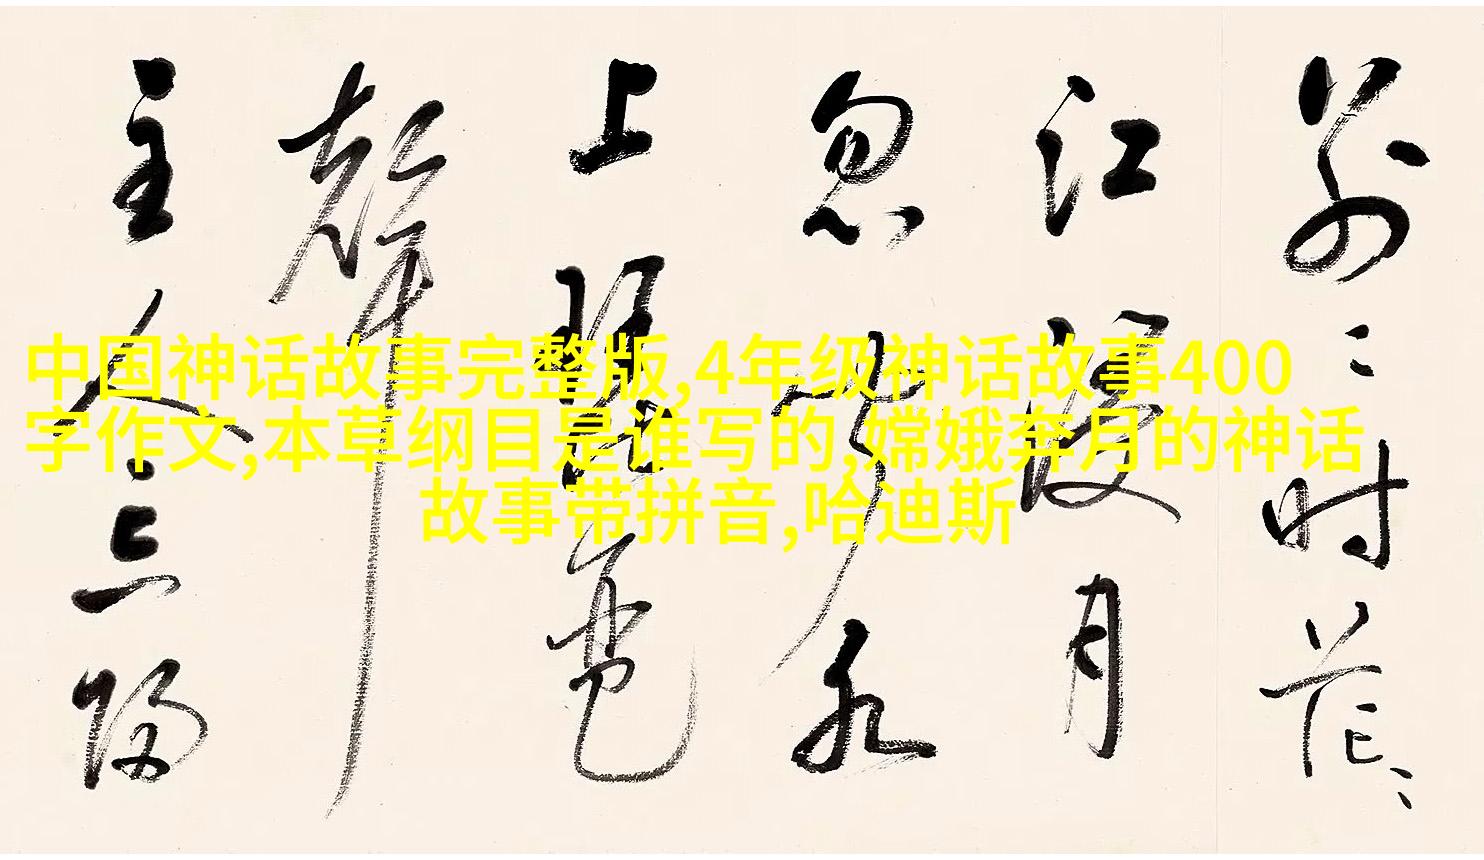 别〻时茫〻
江浸月
忽闻水
上琵琶
聲
主人忘歸
中国神话故事完整版,4年级神话故事400
字作文,本草纲目是谁写的,嫦娥奔月的神话
故事带拼音,哈迪斯